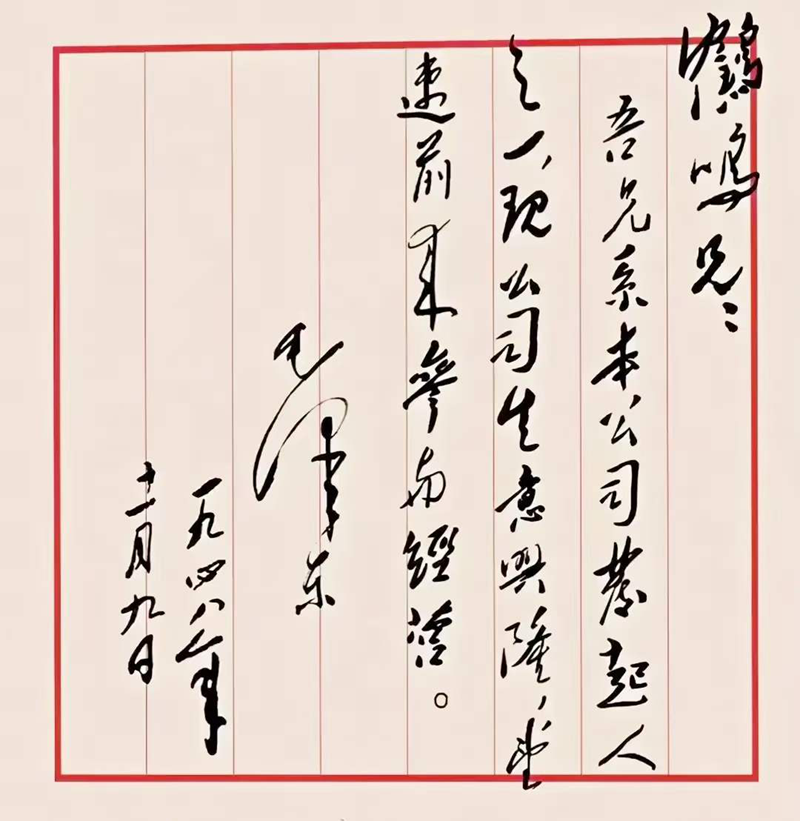 鶴鳴兄：
吾兄系本公司发起人
之一，现公司生意興隆，望
速前来參与經營。
毛泽东
一九四八年
十一月九日